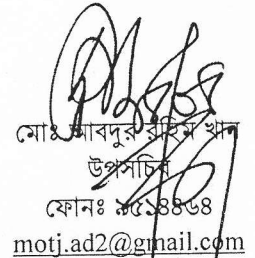 মোঃ আবদুর রহিম খান
উপসচিব
ফোনঃ ৯৫১৪৪৬৪
motj.ad2@gmail.com